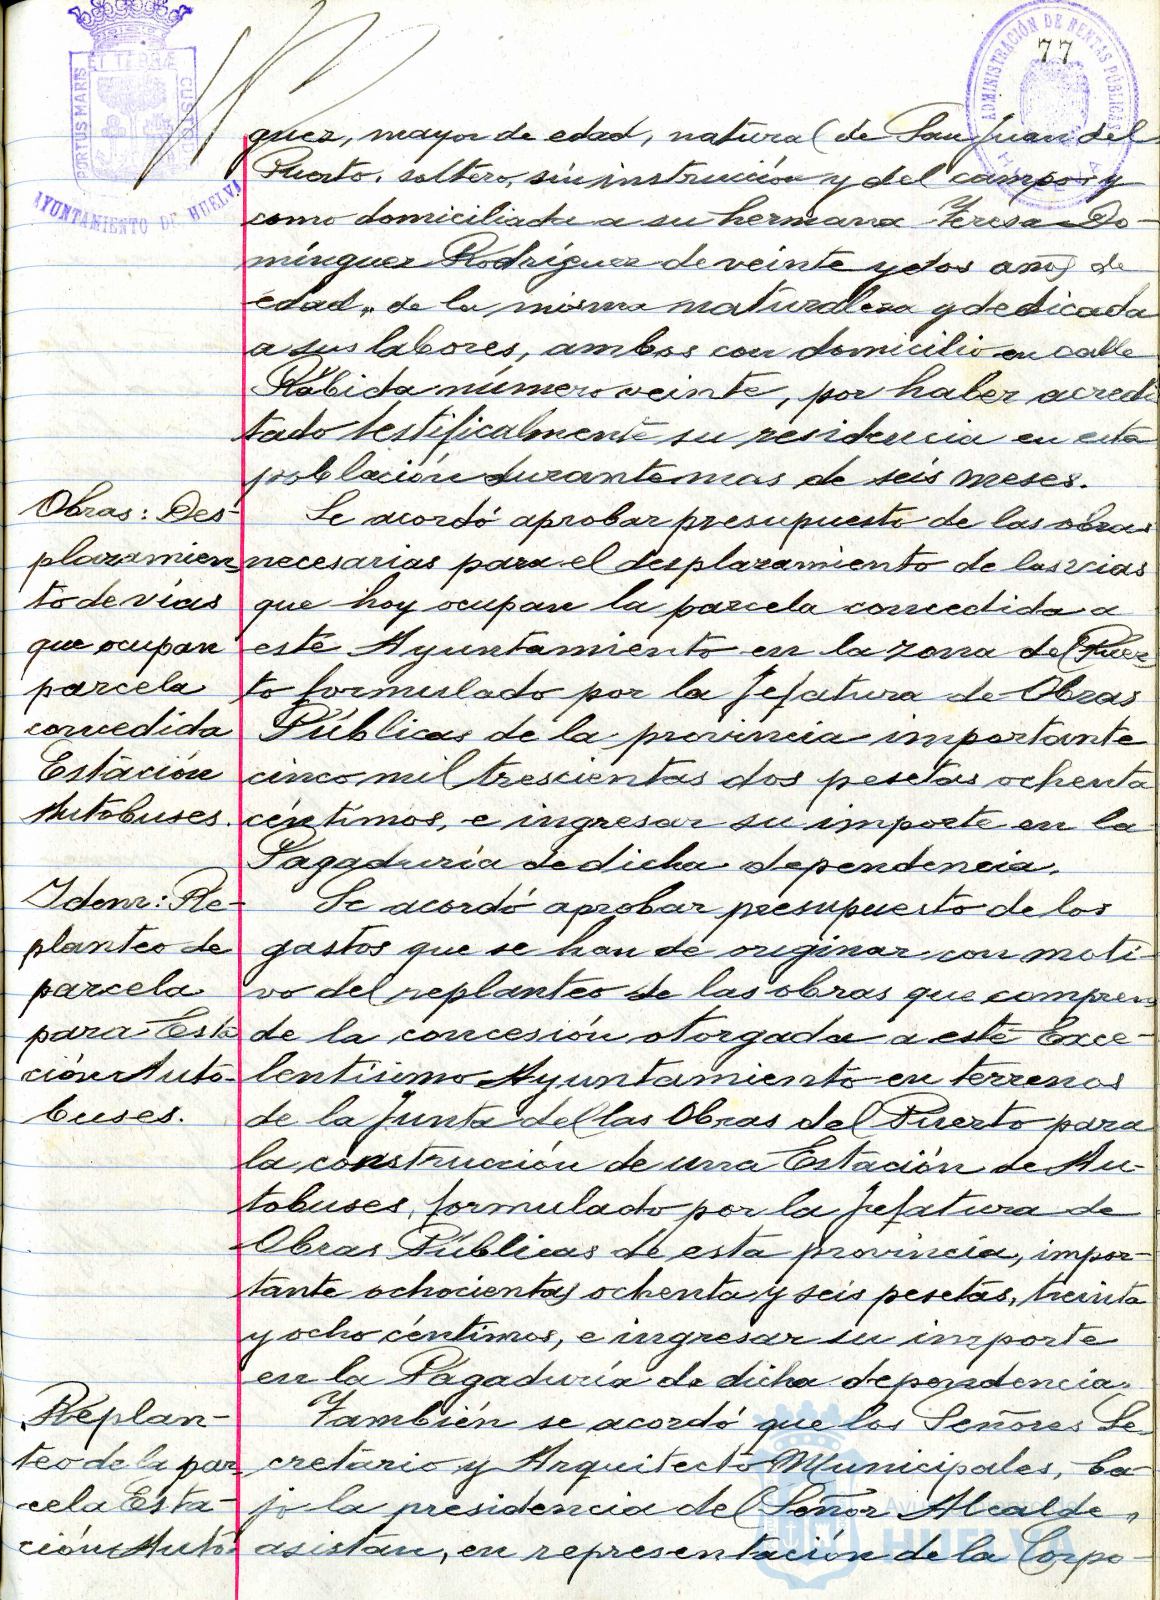 77
PORTUS MARIS
ET TERRÆ
CUSTODIA
AYUNTAMIENTO DE HUELVA
ADMINISTRACIÓN DE RENTAS PÚBLICAS
guez, mayor de edad, natural de San Juan del
Puerto, soltero, sin instrucción y del campo; y
como domiciliada a su hermana Teresa Do-
minguez Rodríguez de veinte y dos años de
edad, de la misma naturaleza y dedicada
a sus labores, ambos con domicilio en calle
Rábida número veinte, por haber acredi
tado testificalmente su residencia en esta
población durante mas de seis meses.
Obras: Des-
plazamien
to de vías
que ocupan
parcela
concedida
Estación
Autobuses.
Se acordó aprobar presupuesto de las obras
necesarias para el desplazamiento de las vias
que hoy ocupan la parcela concedida a
este Ayuntamiento en la zona del Puer
to formulado por la Jefatura de Obras
Públicas de la provincia importante
cinco mil trescientas dos pesetas ochenta
céntimos, e ingresar su importe en la
Pagaduría de dicha dependencia.
Idem: Re-
planteo de
parcela
para Esta
ción Auto-
buses.
Se acordó aprobar presupuesto de los
gastos que se han de originar con moti-
vo del replanteo de las obras que compren
de la concesión otorgada a este Exce-
lentísimo Ayuntamiento en terrenos
de la Junta de las Obras del Puerto para
la construcción de una Estación de Au-
tobuses, formulado por la Jefatura de
Obras Públicas de esta provincia, impor-
tante ochocientas ochenta y seis pesetas, treinta
y ocho céntimos, e ingresar su importe
en la Pagaduría de dicha dependencia.
Replan-
teo de la par
cela Esta-
ción Auto-
También se acordó que los Señores Se-
cretario y Arquitecto Municipales, ba-
jo la presidencia del Señor Alcalde,
asistan, en representación de la Corpo-
HUELVA